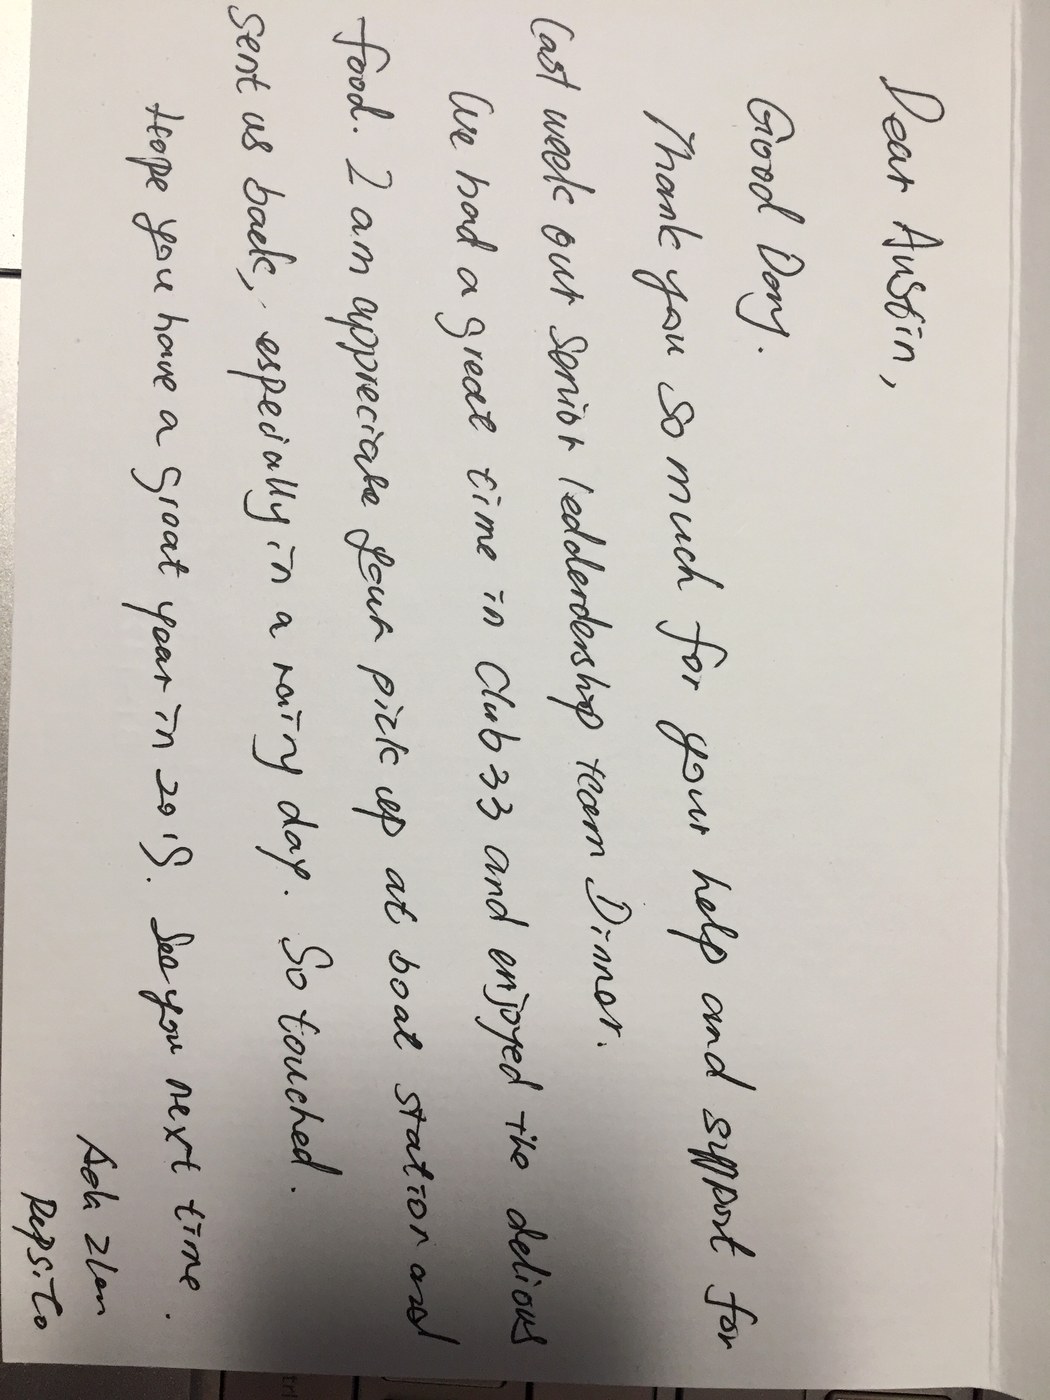 Dear Austin,
Good Day.
Thank you so much for your help and support for
last week our Senior leddderdership team Dinner.
We had a great time in Club 33 and enjoyed the delious
food. I am appreciate your pick up at boat station and
sent us back, especially in a rainy day. So touched.
Hope you have a great year in 2019. See you next time.
Ada
Pepsico
ctrl